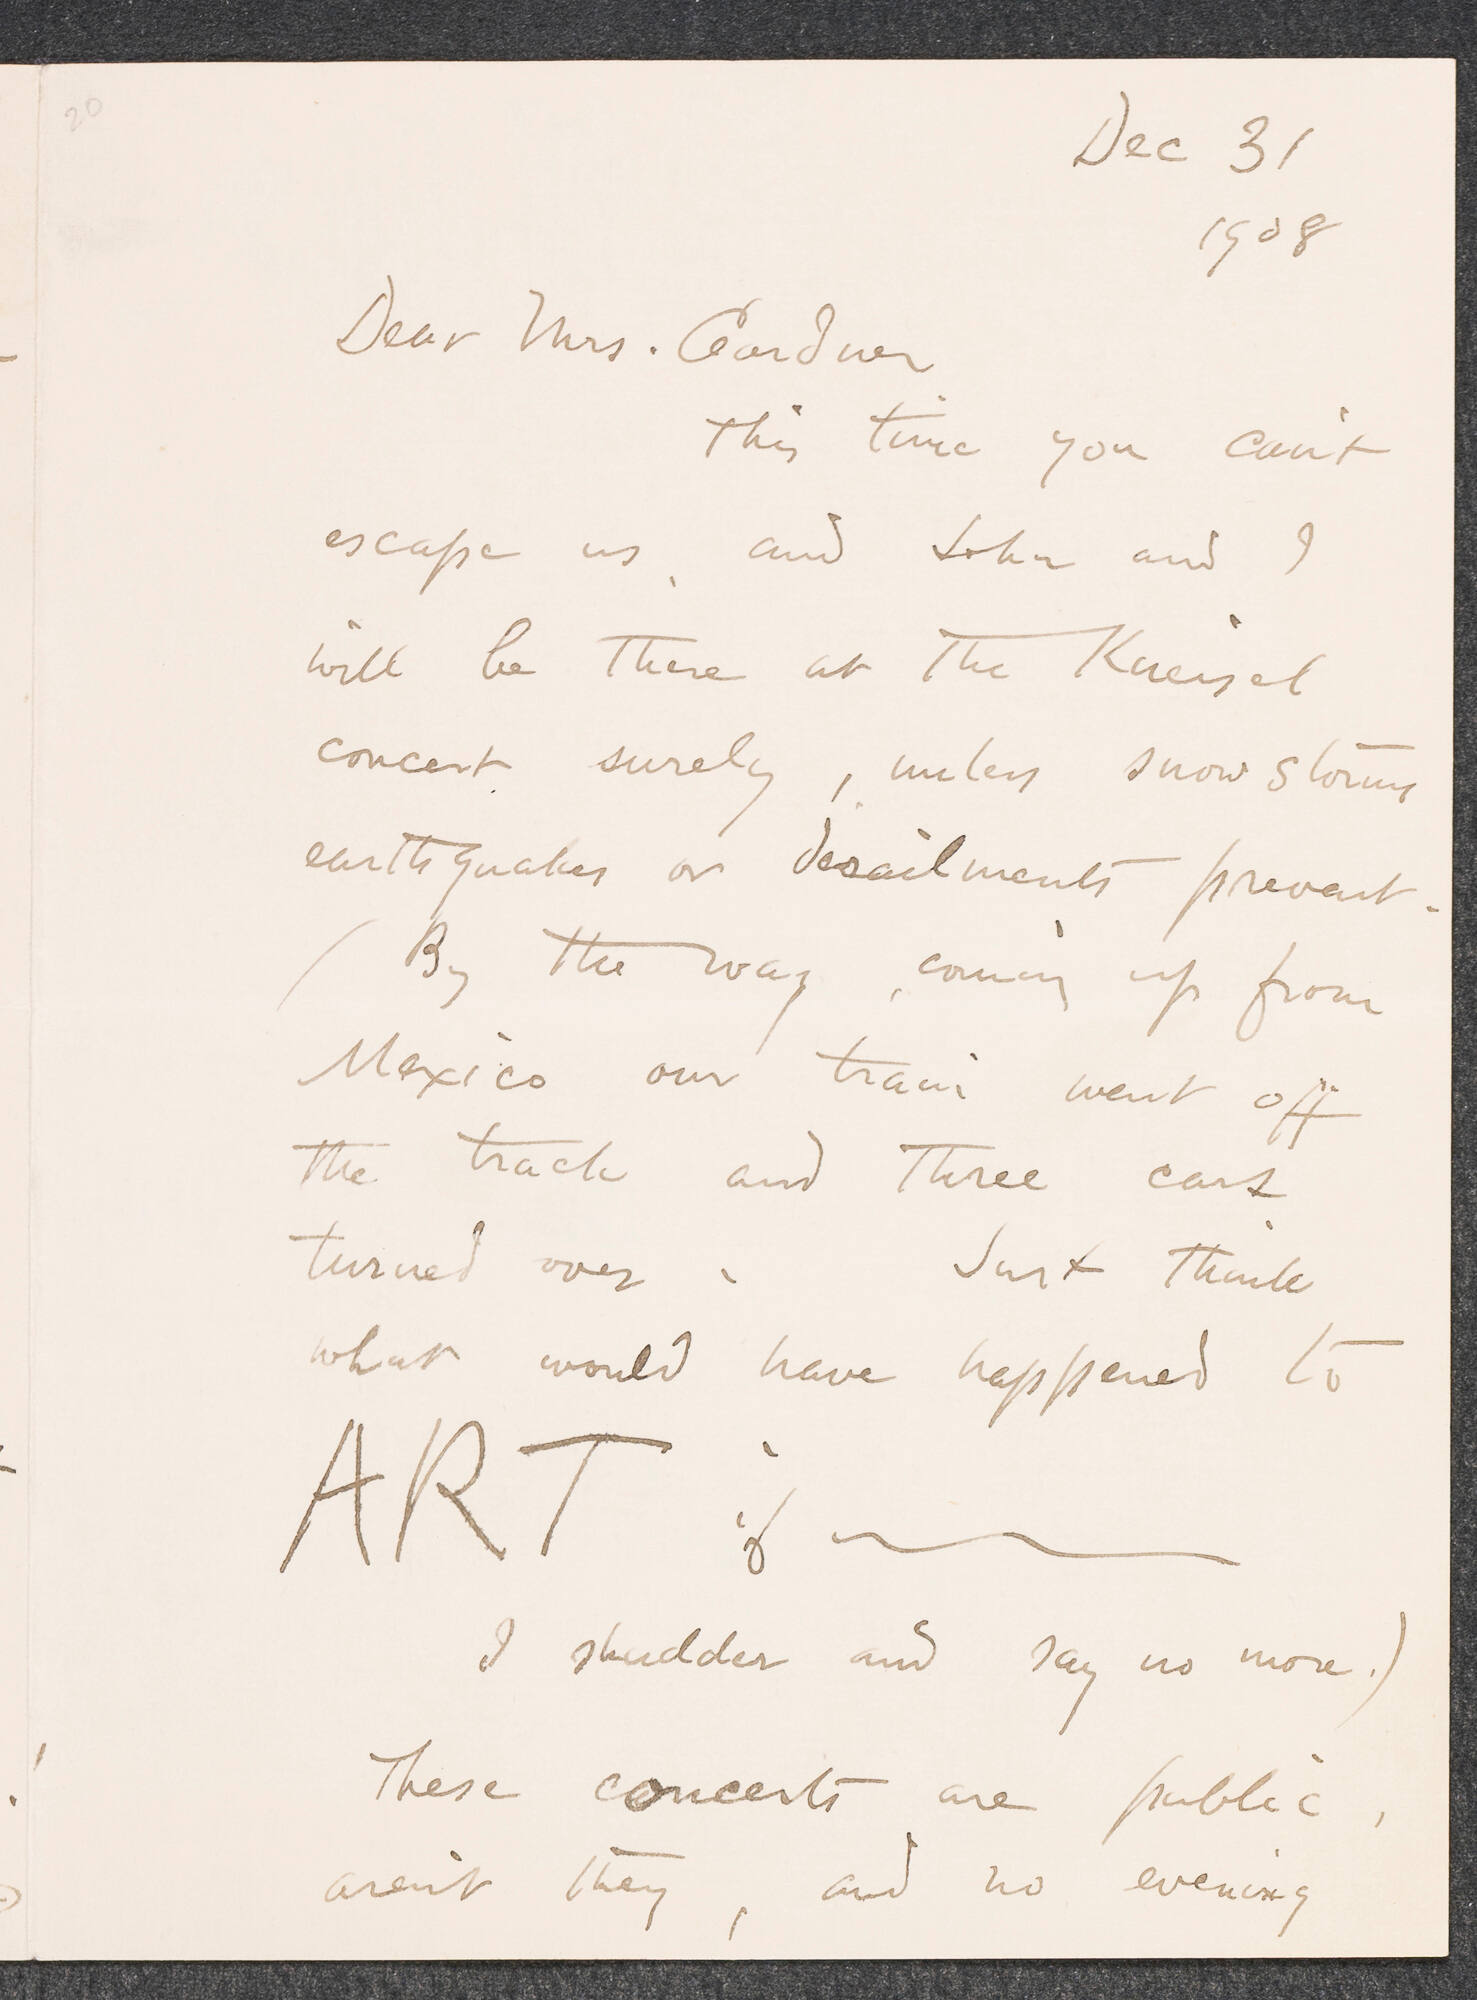 20
Dec 31
1908
Dear Mrs. Gardner
This time you can't
escape us, and John and I
will be there at the Kneisel
concert surely, unless snow storms
earthquakes or derailments prevent.
(By the way, coming up from
Mexico our train went off
the track and three cars
turned over. Just think
what would have happened to
ART if
I shudder and say no more.)
These concerts are public,
aren't they, and no evening